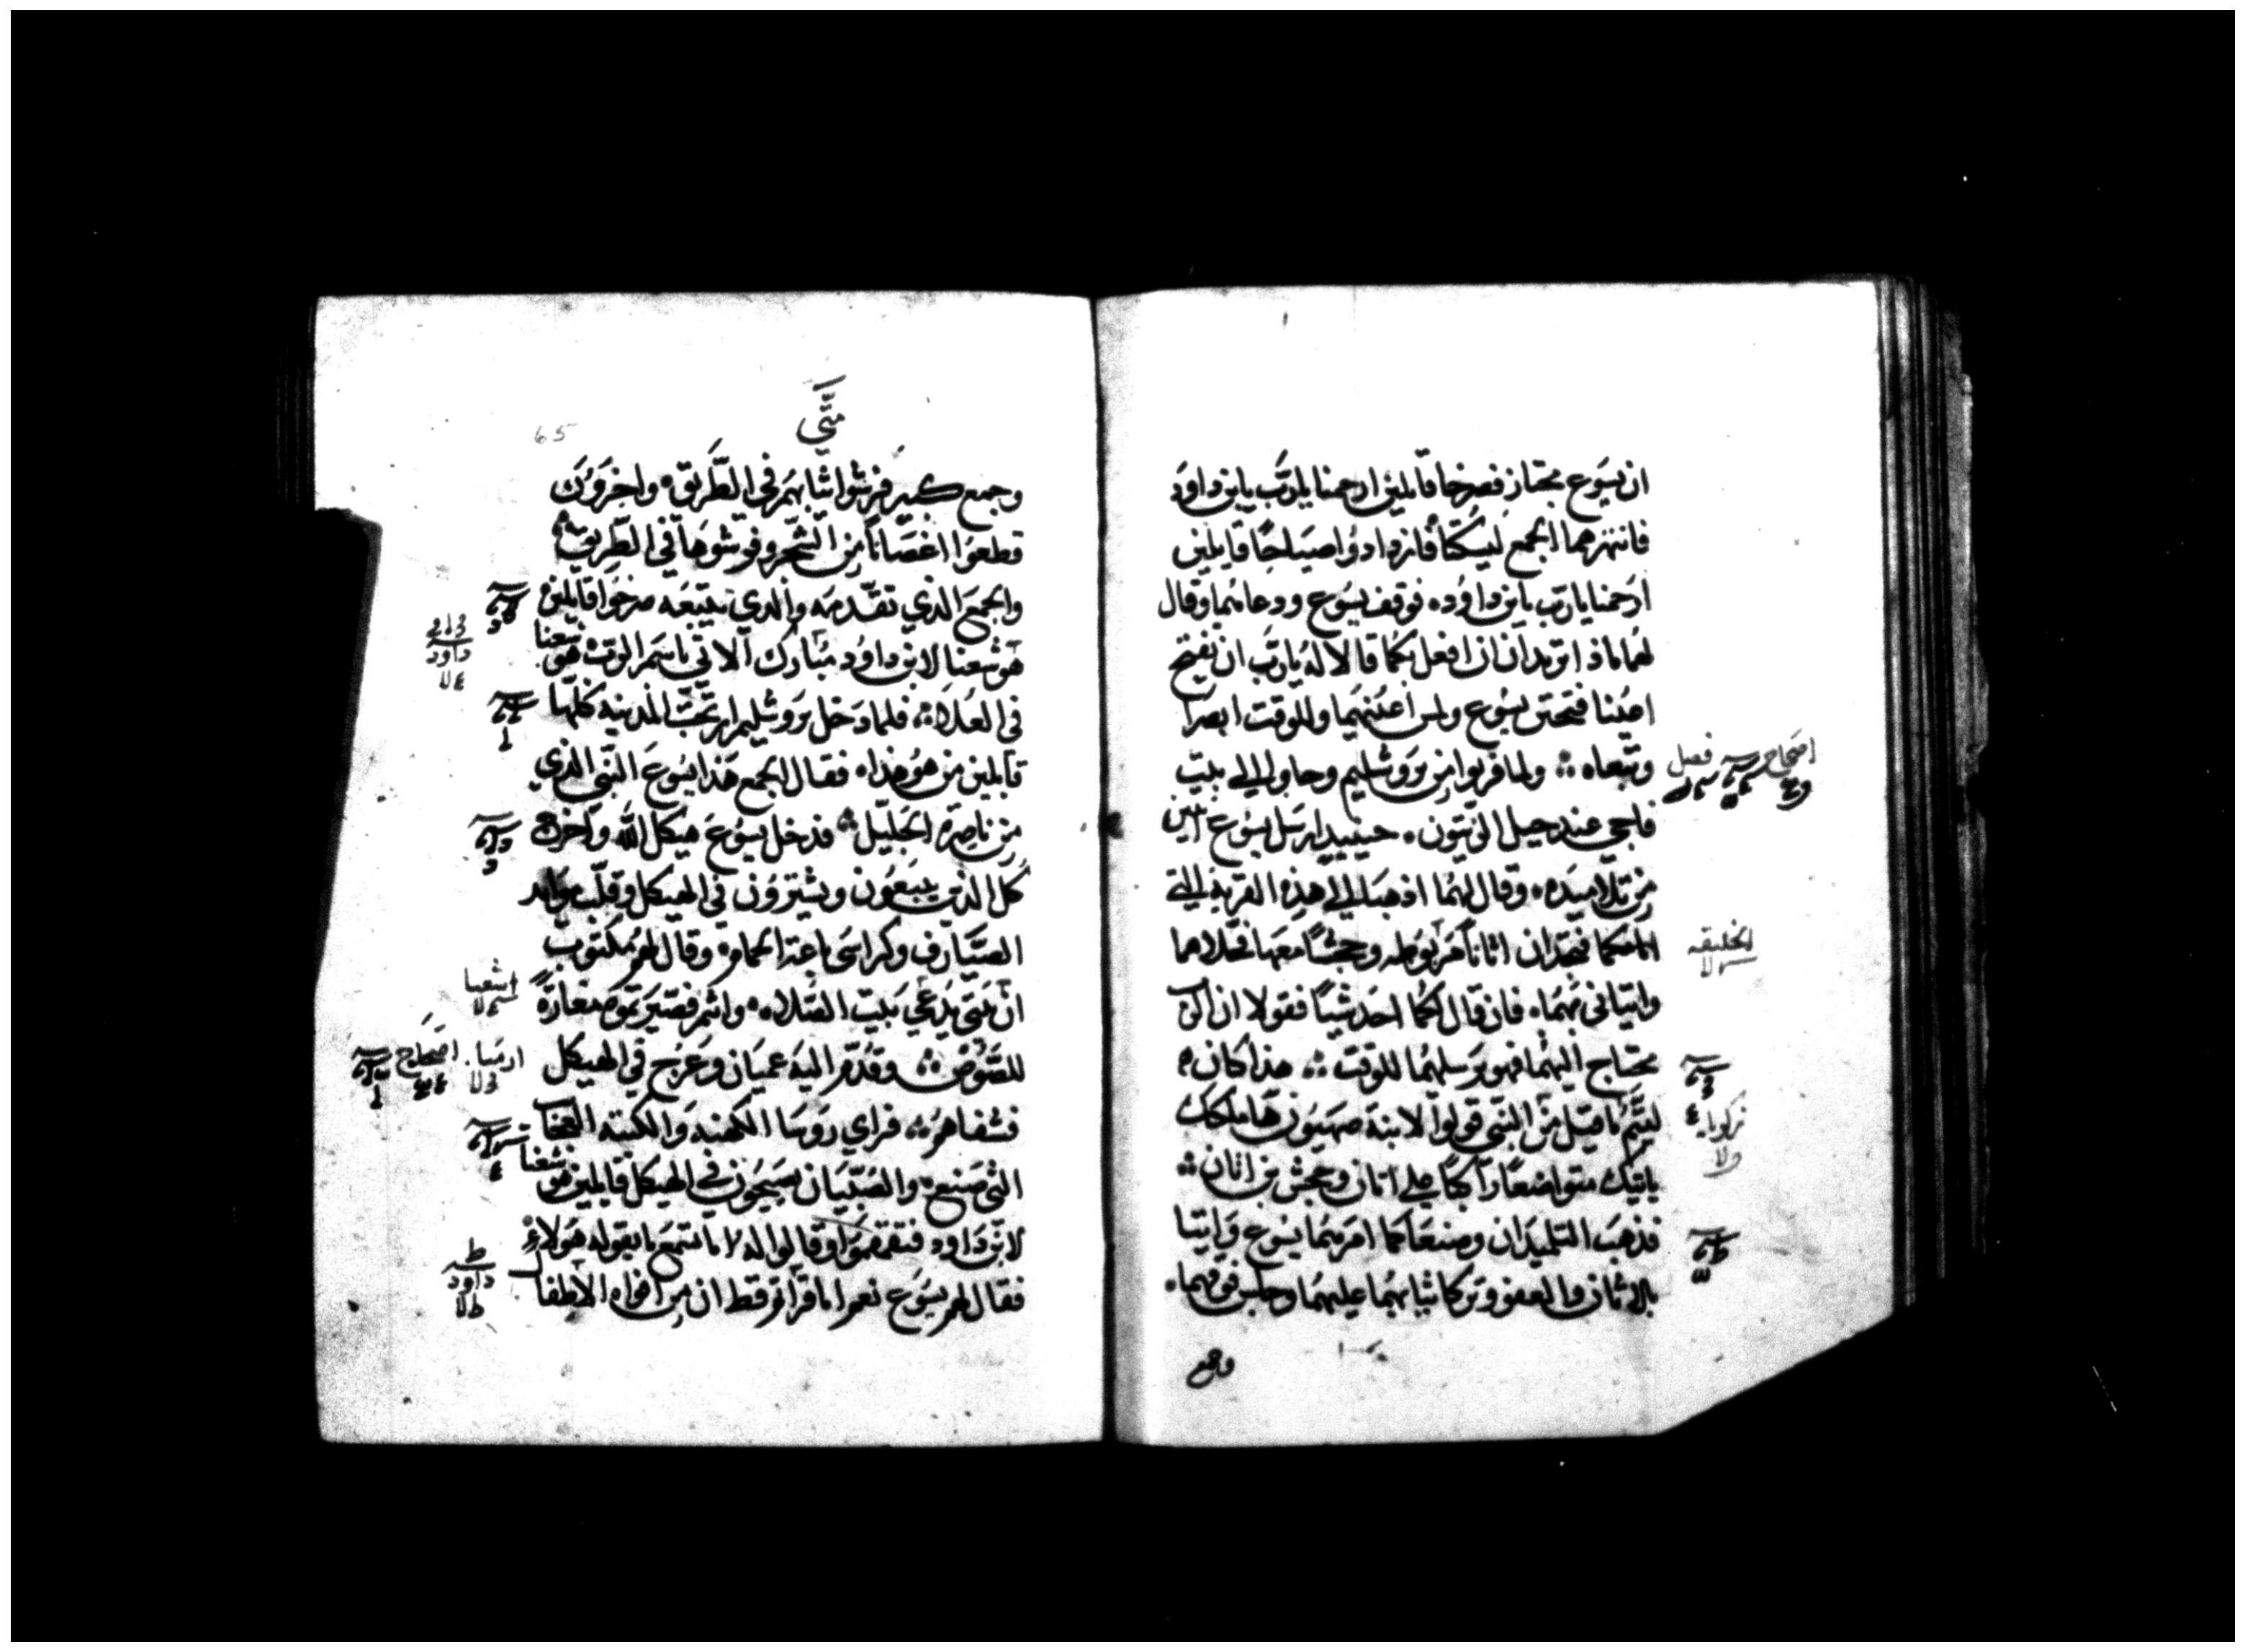 ان يسوع مجتاز فصرخا قايلين ارحمنا يارب يابن داود
فانتهرهما الجمع ليسكتا فازدادوا صياحا قايلين
ارحمنا يارب يابن داود ۰ فوقف يسوع ودعاهما وقال
لهما ماذا تريدان ان افعل بكما قالا له يارب ان تفتح
اعيننا فتحنن يسوع ولمس اعينهما وللوقت ابصرا
وتبعاه ۞ ولما قربوا من يروشليم وجاوا الي بيت
فاجي عند جبل الزيتون ۰ حينيد ارسل يسوع اثنين
من تلاميده ۰ وقال لهما ادهبا الي هذه القريه التي
امامكما فتجدان اتانا مربوطه وجحشا معها فحلاهما
واتياني بهما ۰ فان قال لكما احد شيا فقولا ان الرب
محتاج اليهما فهو يرسلهما للوقت ۞ هذا كان ۰
ليتم ما قيل من النبي قولوا لابنة صهيون ها ملكك
ياتيك متواضعا راكبا علي اتان وجحش بن اتان ۞
فذهب التلميدان وصنعا كما امرهما يسوع وايتيا
بالاتان والعفو وتركا ثيابهما عليهما وجلس فوقهما ۰
وجمع
اصحاح
فصل
الخليقه
زكريا
متي
65
وجمع كبير فرشوا ثيابهم في الطريق ۰ واخرون
قطعوا اغصانا من الشجر وفرشوها في الطريق ۞
والجمع الذي تقدمه والدي يتبعه صرخوا قايلين
هوشعنا لابن داود مبارك الاتي باسم الرب هوشعنا
في العلا ۞ فلما دخل يروشليم ارتجت المدينه كلها
قايلين من هو هذا ۰ فقال الجمع هذا يسوع النبي الذي
من ناصرة الجليل ۞ فدخل يسوع هيكل الله واخرج
كل الذين يبيعون ويشترون في الهيكل وقلب موايد
الصيارف وكراسي باعة الحمام ۰ وقال لهم مكتوب
ان بيتي يدعي بيت الصلاه ۰ وانتم فصيرتموه مغارة
للصوص ۞ وقدم اليه عميان وعرج في الهيكل
فشفاهم ۞ فراي روسا الكهنه والكتبه العجايب
التي صنع ۰ والصبيان يسبحون في الهيكل قايلين هوشعنا
لابن داود فتقمقموا وقالوا له اما تسمع ما يقوله هولاء
فقال لهم يسوع نعم اما قراتم قط ان من افواه الاطفال
داود
اشعيا
ارميا
اصحاح
داود